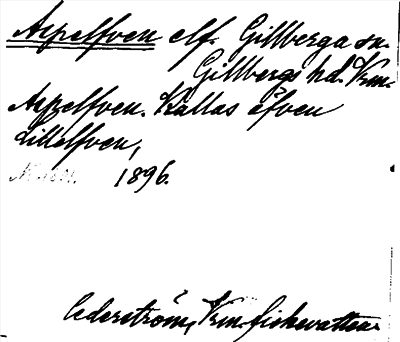 Aspelfven elf. Gillberga sn.
Gillbergs hd. Vrm.
Aspelfven. Kallas äfven
Lillelfven,
1896.
Cederström, Vrm. fiskevatten